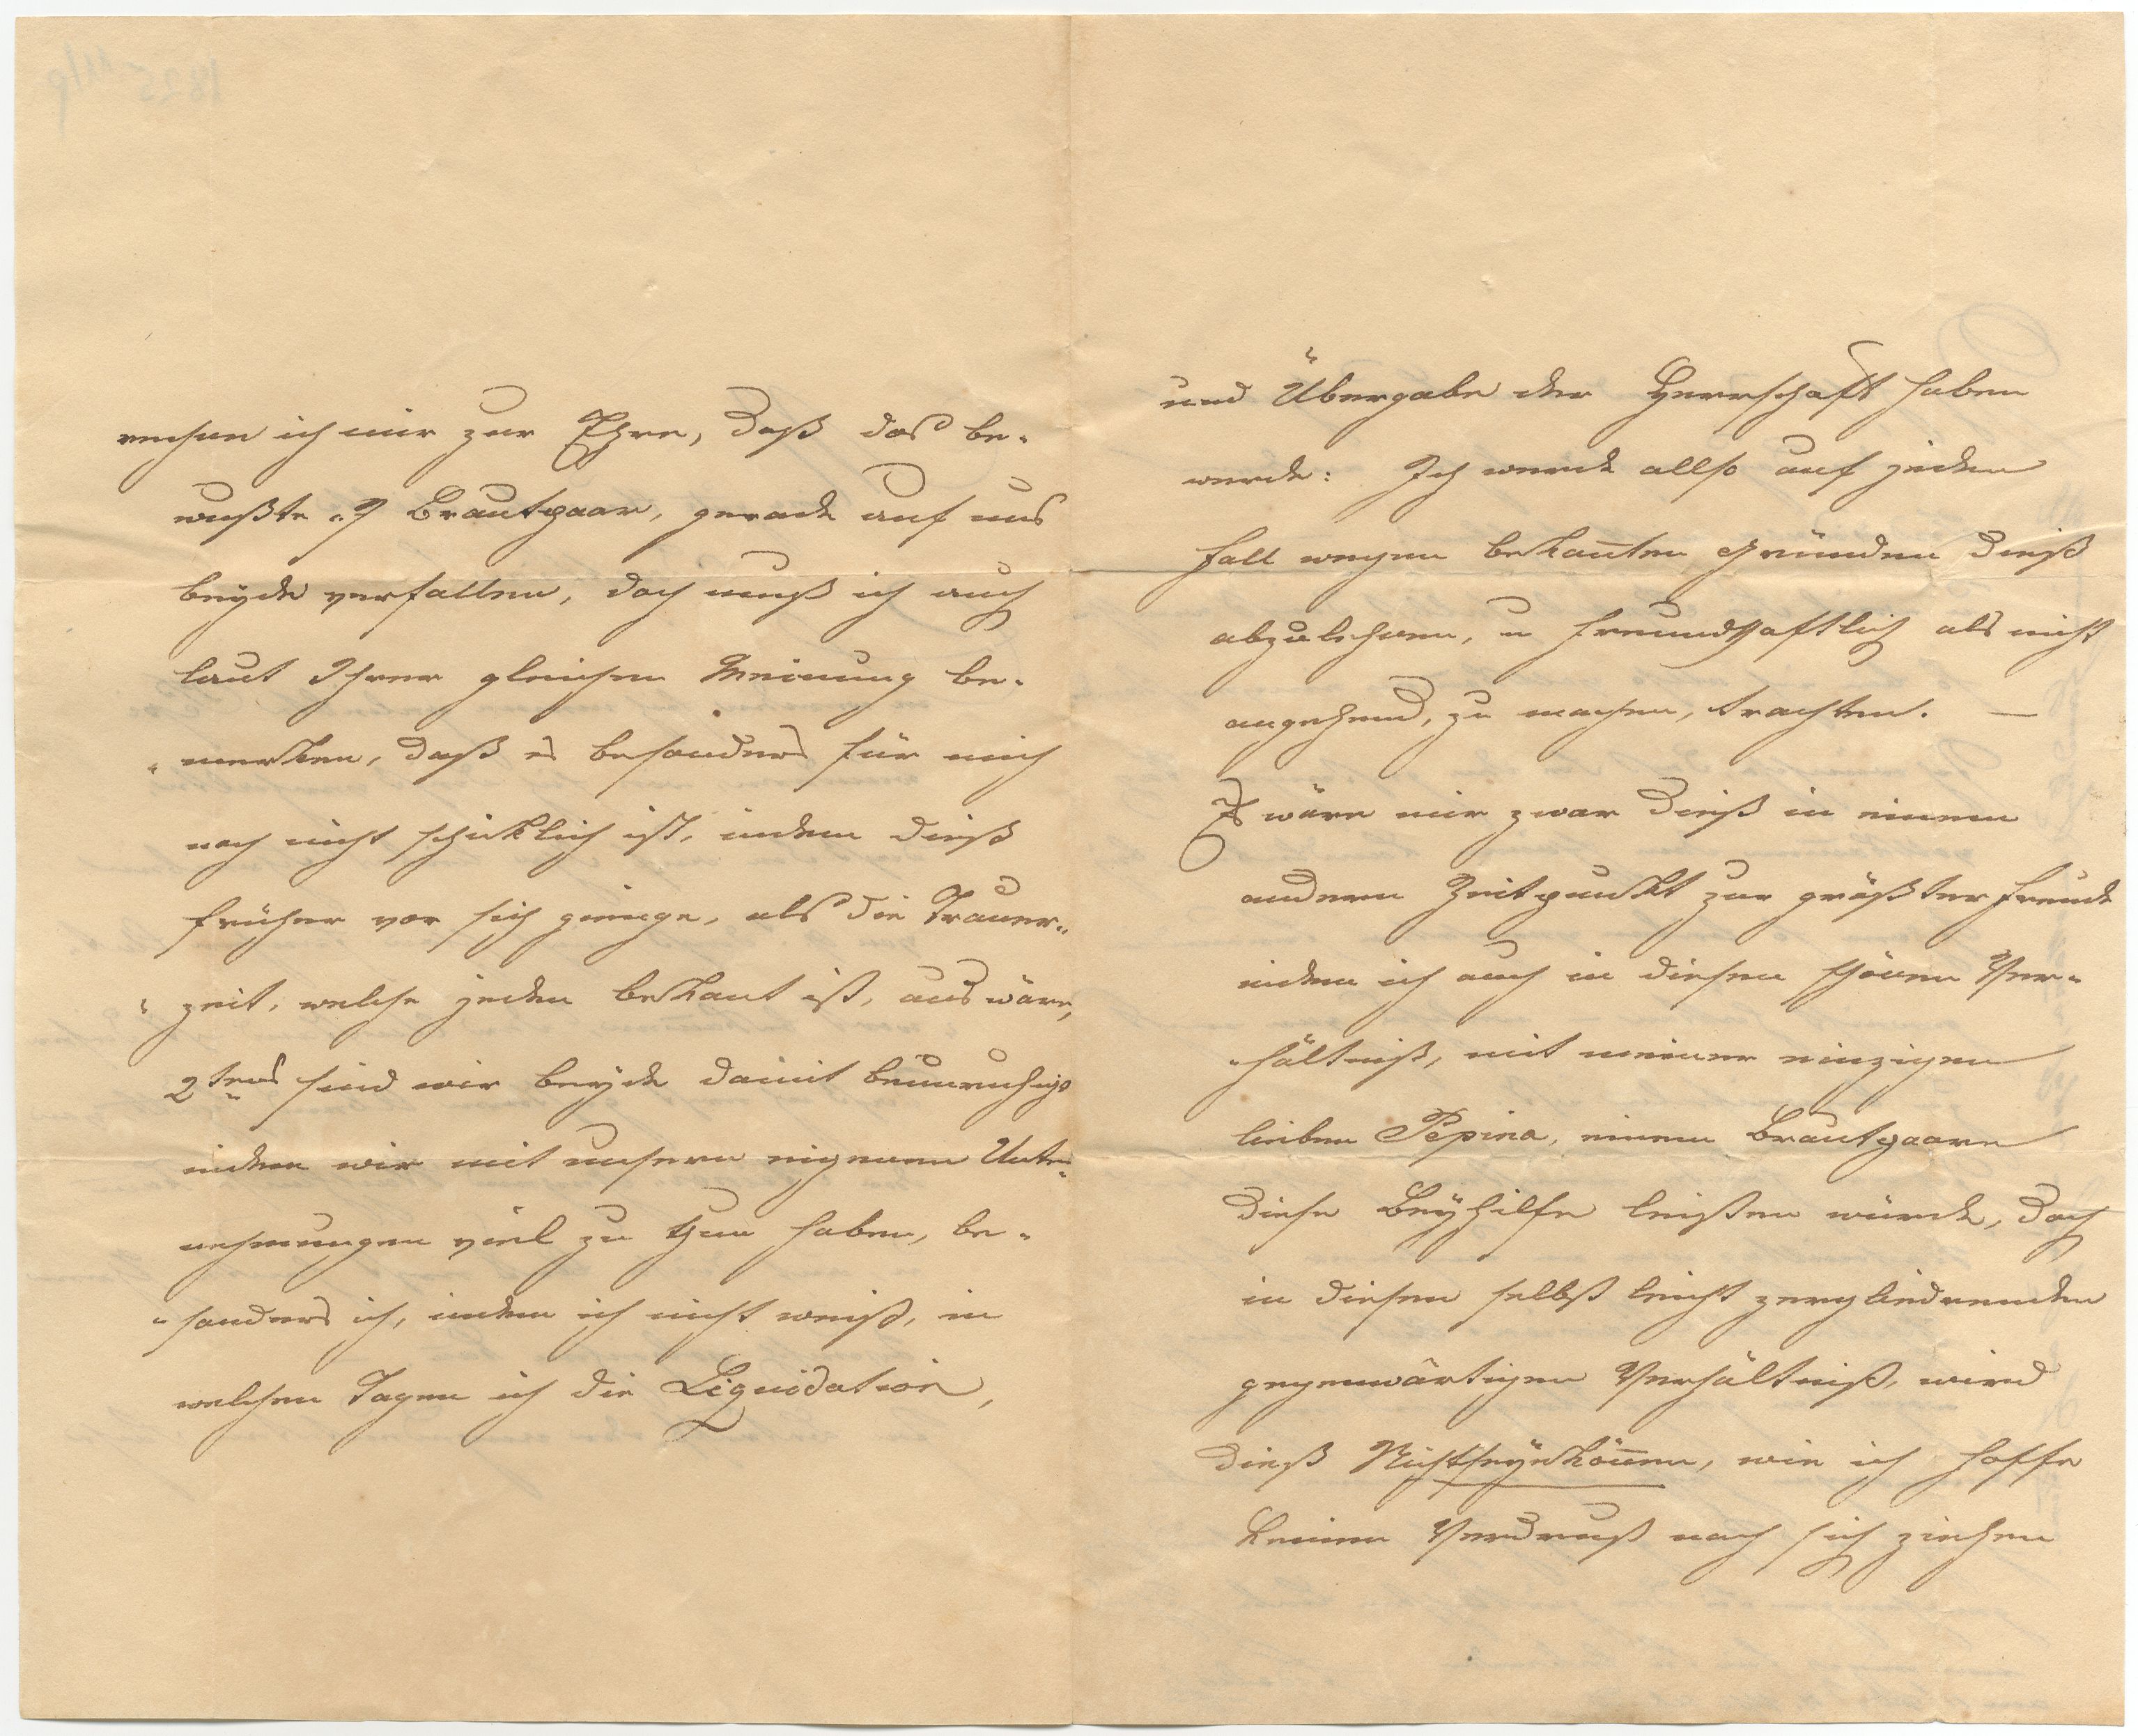 rechne ich mir zur Ehre, daß das be-
wußte Brautpaar, gerade auf uns
beyde verfallen, doch muß ich auch
laut Ihrer gleichen Meinung be-
merken, daß es besonders für mich
noch nicht schicklich ist, indem dieß
früher vor sich ginge, als die Trauer-
zeit, welche jeden bekant ist, aus wäre,
2tens sind wir beyde damit beunruhigt
indem wir mit unsern eigenen Unter-
nehmungen viel zu thun haben, be-
sonders ich, indem ich nicht weiß, in
welchen Tagen ich die Liquidation,
und Übergabe der Herrschaft haben
werde: Ich werde allso auf jeden
Fall wegen bekañten Gründen dieß
abzulehnen, u freundschaftlich als nicht
angehend, zu machen, trachten. —
Es wäre mir zwar dieß in einem
andern Zeitpunkt zur größter Freude
indem ich auch in diesen schönen Ver-
hältniß, mit meiner einzigen
lieben Pepina, einem Brautpaare
diese Beyhilfe leisten würde, doch
in diesen selbst leicht zergliedrenden
gegenwärtigen Verhältniß, wird
dieß Nichtseynköñen, wie ich hoffe
keinen Verdruß nach sich ziehen